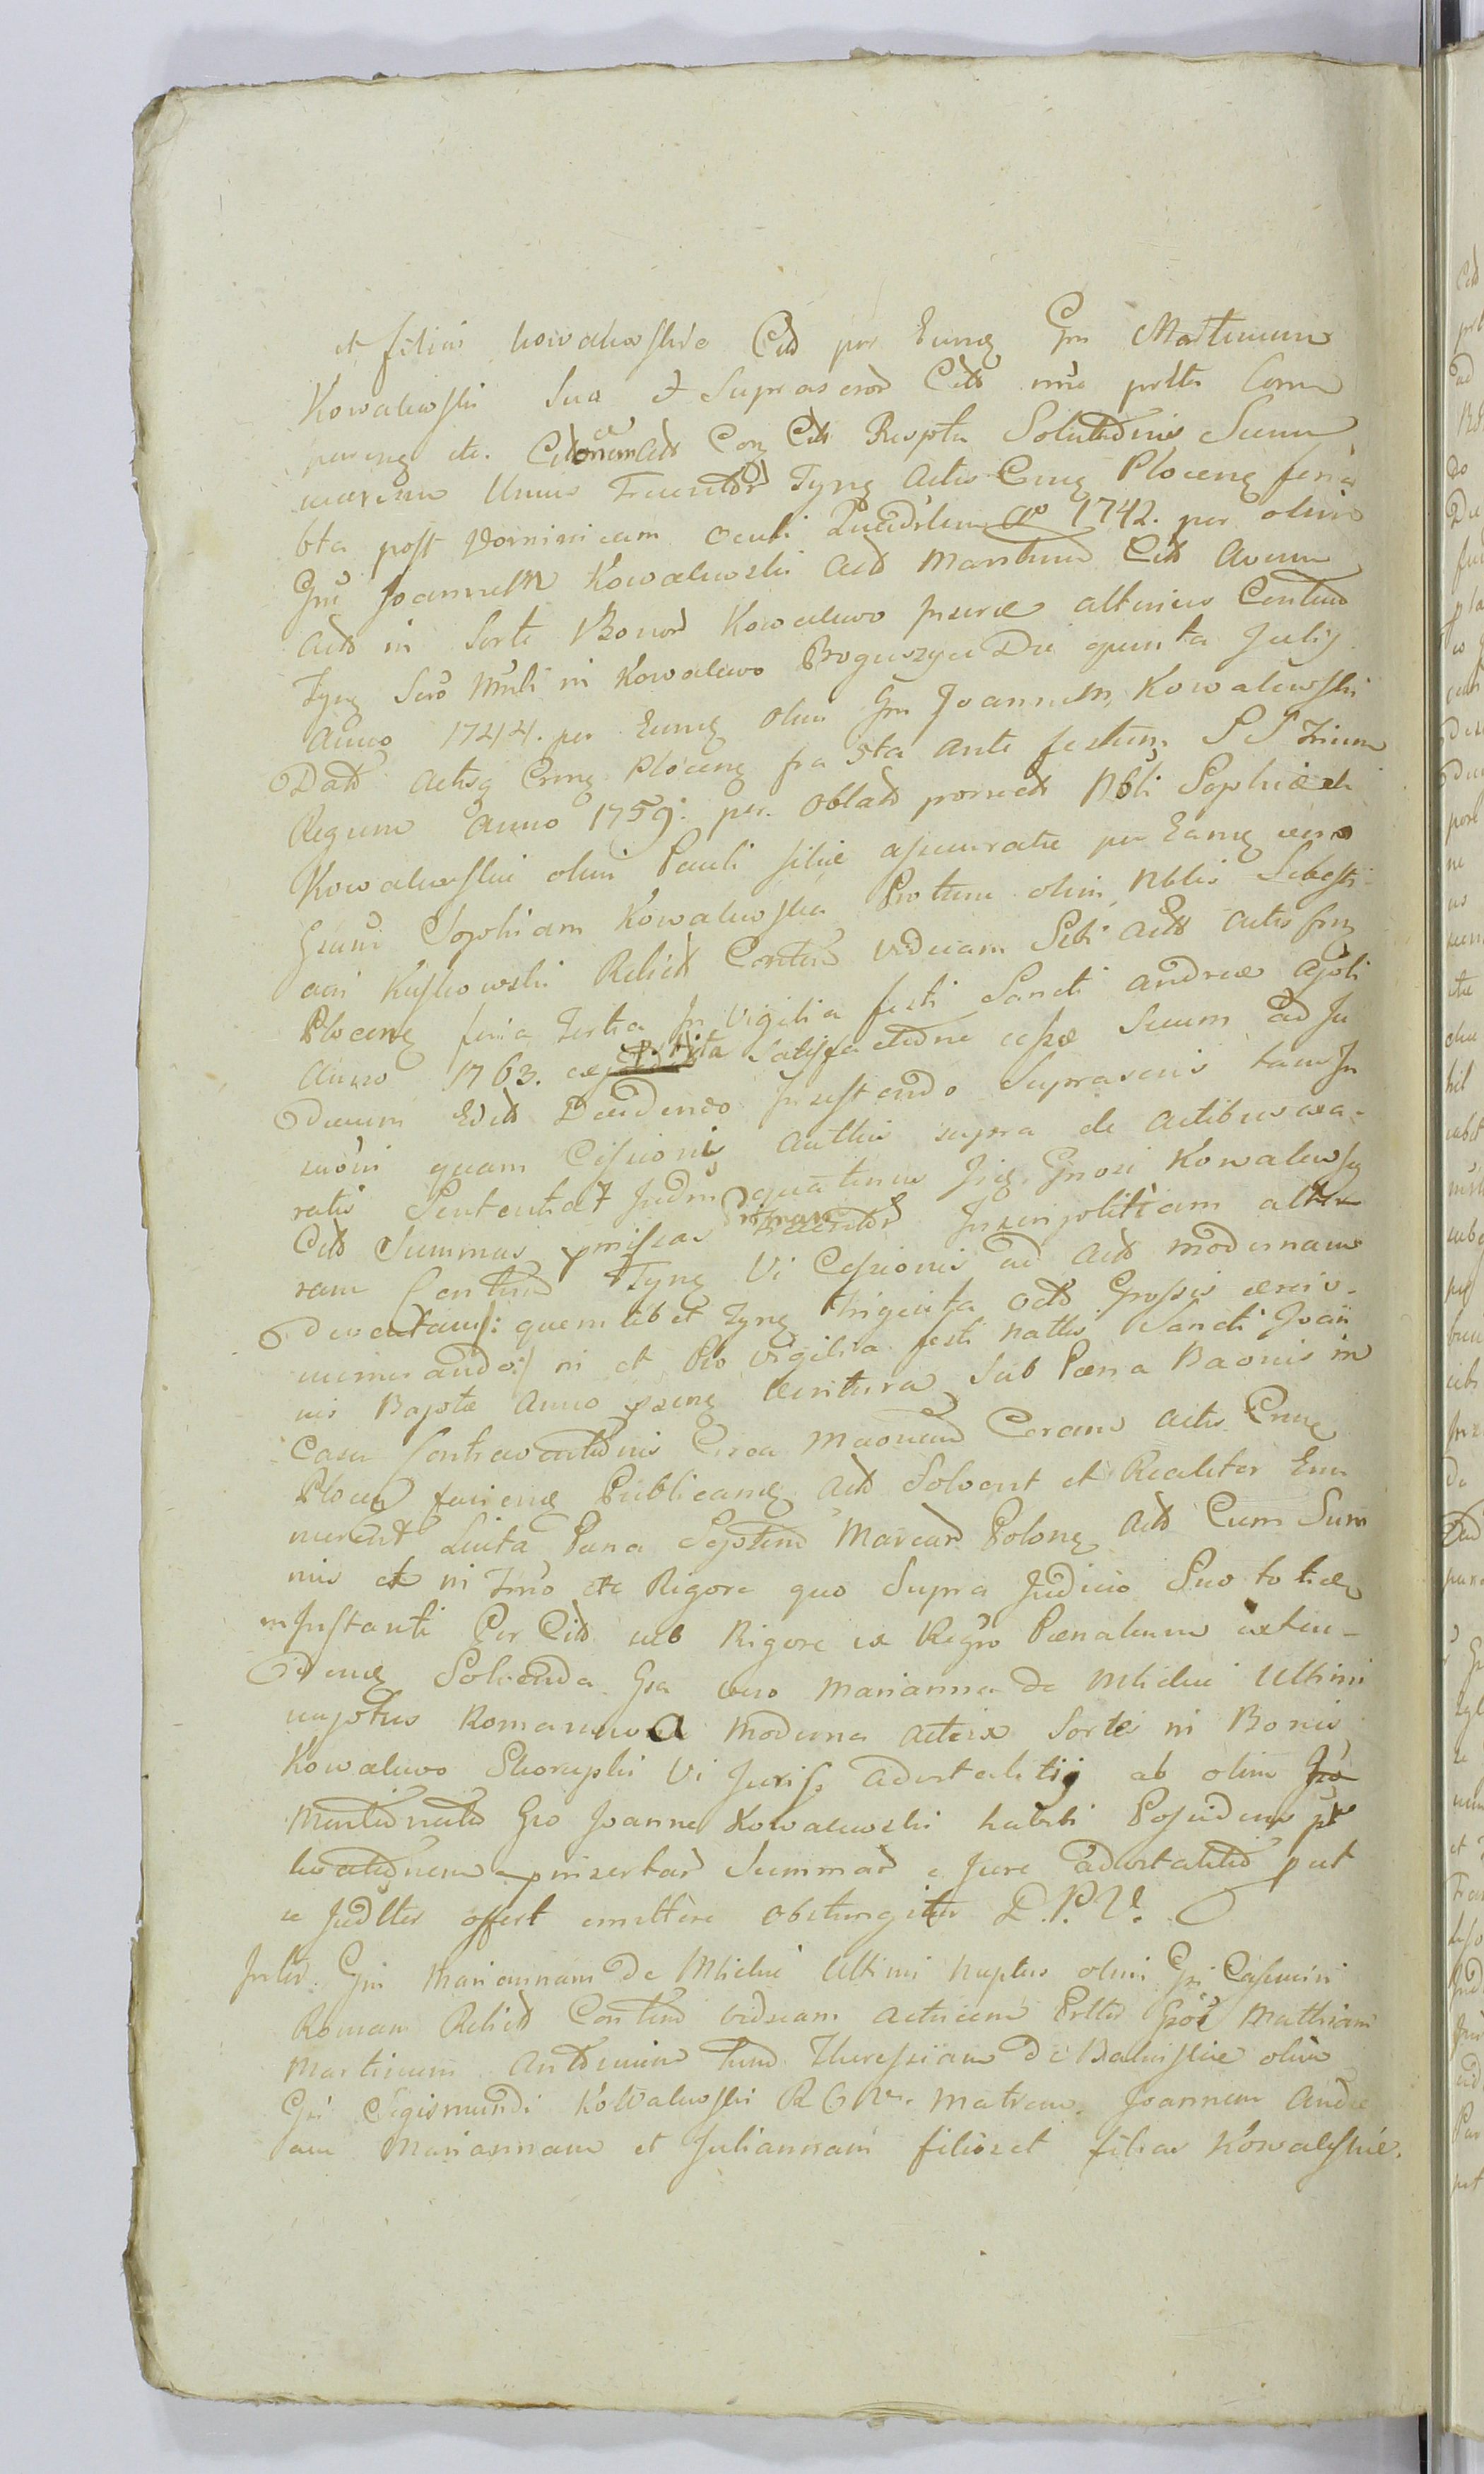 et filius Kowalewskie Citt per Eunq Gm Martinum
Kowalewski Sua et Suprascrod Citt nne prtte Com
parenq etc. Citt Conq Citt Respctu Solutionis Summ
marum Unius Trecentor Tynq Actis Crnq Plocenq feria
6ta post Dominicam Oculi Quadrlem Ao 1742. per olim
Gm Joannem Kowalewski Actt Maritum Citt Avum
Actt in Sorte Bonor Kowalewo Inscrae alterius Centum
Tynq Scro Mnli in Kowalewo Boguszyce Die quinta Julij
Anno 1744. per Eunq olim Gm Joannem Kowalewski
Datt Actisq Crnq Plocenq fra 5ta ante festum SS Trium
Regum Anno 1759. per Oblatt porrectt Nbli Sophiae de
Kowalewskie olim Pauli filiae assecuratae per Eamq vero
Gsam Sophiam Kowalewska Protunc olim Nblis Sebasti-
ani Kuskowski Relictt Contem viduam Sibi Actt Actis Crnq
Plocenq feria Tertia In Vigilia festi Sancti Andreae Apli
Anno 1763. expedita Satisfactione cessae Suum ad Ju
dicium Editt Dandenco Insistendo Suprascris tam In
scrioni quam Cessioni authcis supra de Actibus exa-
ratis Sententiat Judm quatenus Iidq Gnosi Kowalewscy
Citt Summas pmissas Primam Trecentor Inscripolitiam alte
ram Centum Tynq Vi Cessionis ad Actt modernam
devolutam /: quemlibet Tynq triginta octo Grossis aereis
numerando :/ in et Pro vigilia festi Nattis Sancti Joan
nis Baptae Anno psenq venitura Sub Poena Baonis in
Casu Contraventionis Circa Maonem Coram Actis Crnq
Plocen furienq Publicamq Actt Solvent et Realiter Enu
merent Luita Pena Septem Marcar Polonq Actt Cum Sum
mis et in Trno etc Rigore quo Supra Judicio Suo toties
instanti Per Citt sub Rigore ex Regro Poenalium exten-
denq Solvenda. Gsa vero Marianna de Mlickie Ultimi
nuptus Romanowa Moderna Actrix Sortis in Bonis
Kowalewo Skorupki Vi Juris advitalitij ab olim
Mentionato Gso Joanne Kowalewski habiti Possidens pt
levationem pinsertar Summar e Jure advitalitio put
se Judlter offert emittere obstringitur D.P.V.
Inter. Gm Mariannam de Mlickie Ultimi Nuptus olim Gsi Casimiri
Roman Relictt Contem viduam Actricem Pertta Gsos Mathiam
Martinum Antonium tum Theressiam de Balinskie olim
Gsi Sigismundi Kowalewski R C V. Matrem. Joannem Andre
am Mariannam et Juliannam filios et filias Kowalskie.